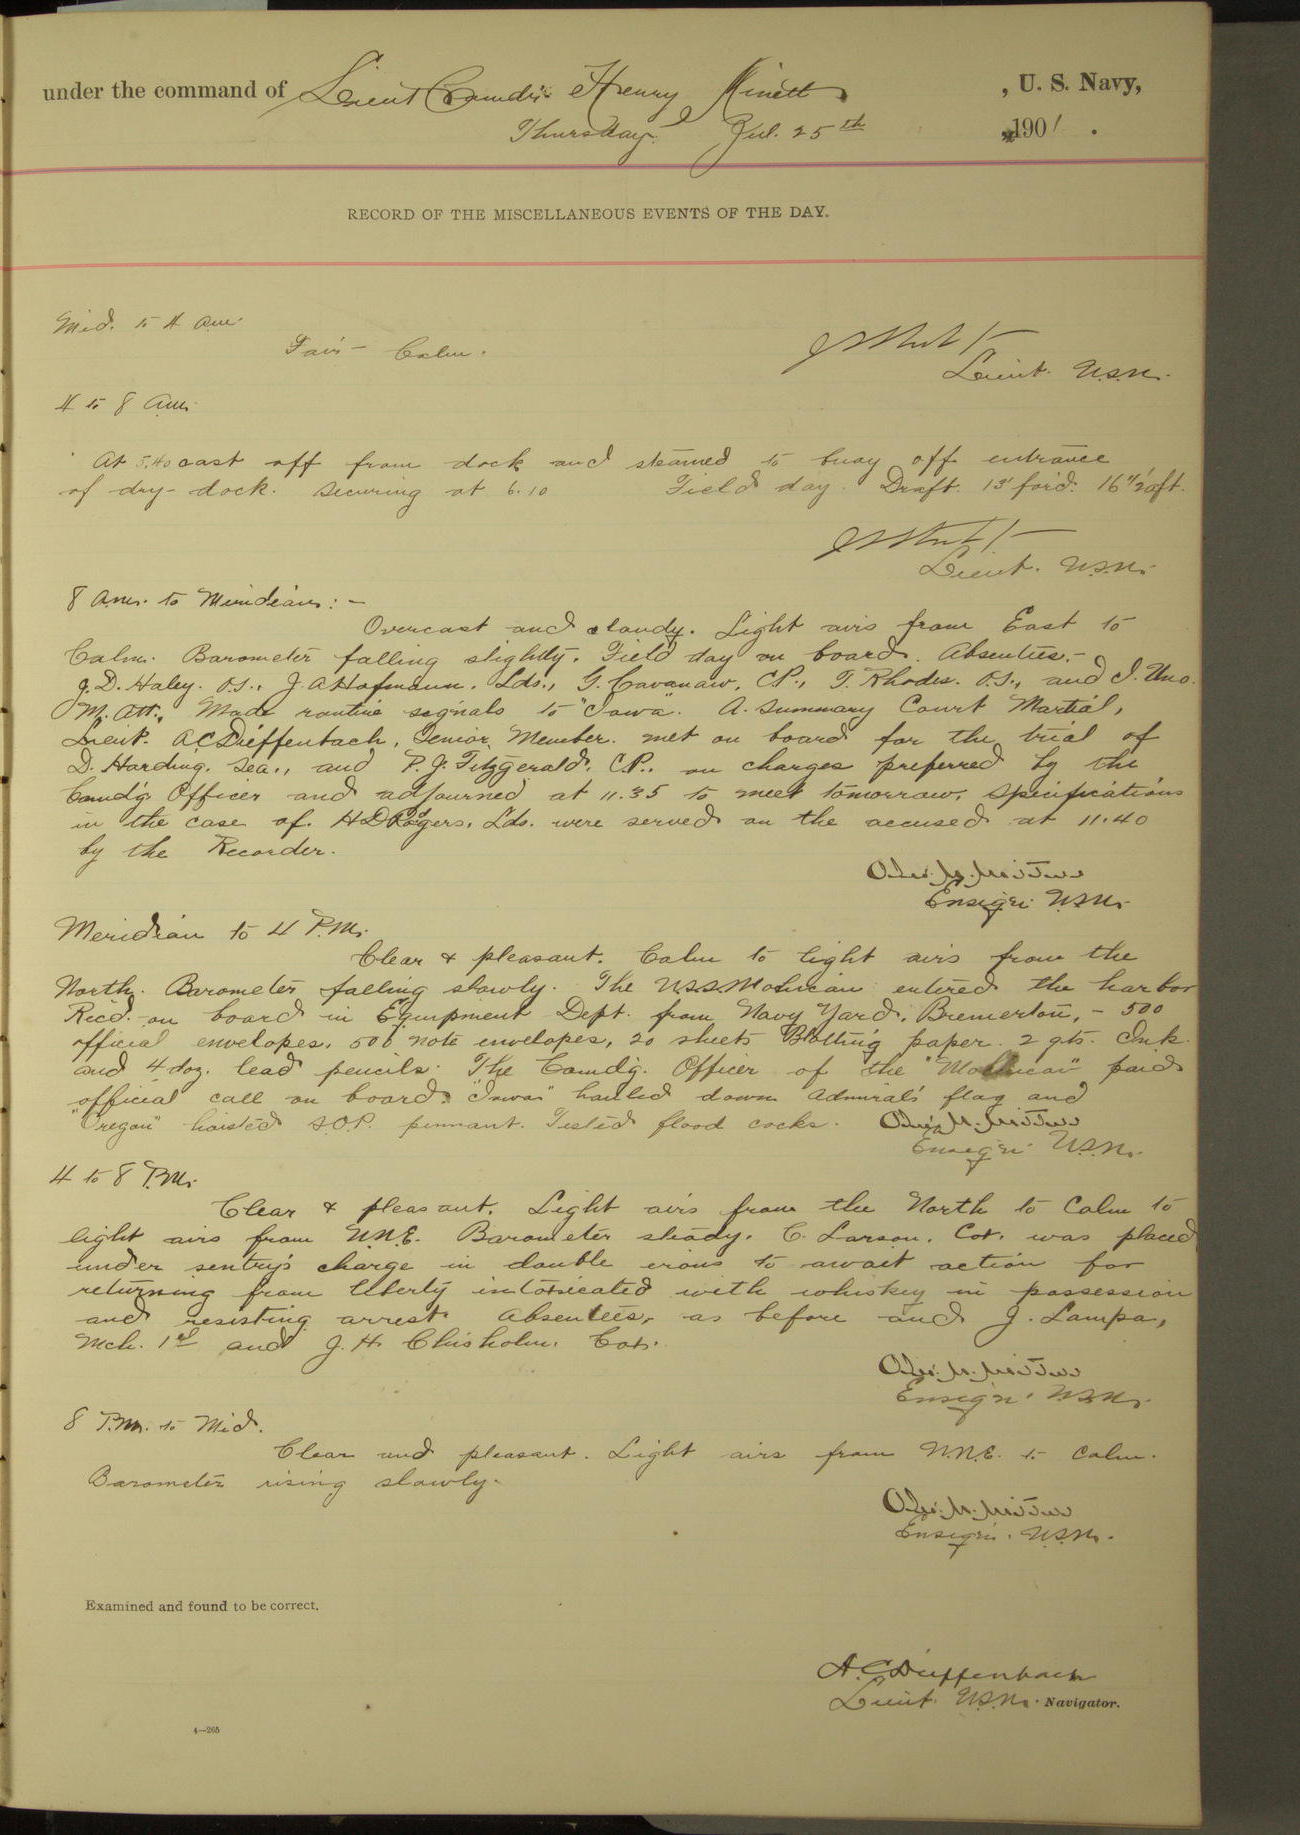 under the command of Lieut Comdr. Henry Minett , U. S. Navy,
Thursday. Jul. 25th , 1901 .
RECORD OF THE MISCELLANEOUS EVENTS OF THE DAY.
Mid. to 4 a.m.
Fair – Calm.
Lieut. U.S.N.
4 to 8 a.m.
At 5.40 cast off from dock and steamed to buoy off entrance
of dry-dock. Securing at 6.10 Field day. Draft. 13' for'd. 16' 1/2 aft.
Lieut. U.S.N.
8 a.m. to Meridian: –
Overcast and cloudy. Light airs from East to
Calm. Barometer falling slightly. Field day on board. Absentees. –
J. D. Haley. O.S., J. A Hofmann. Lds., G. Cavanaw, C.P., T. Rhodes. O.S., and I. Uno.
M. Att., Made routine signals to "Iowa". A. Summary Court Martial,
Lieut. A C Dieffenbach, Senior Member. met on board for the trial of
D. Harding. Sea., and P. J. Fitzgerald. C.P., on charges preferred by the
Comd'g Officer and adjourned at 11.35 to meet tomorrow. Specifications
in the case of. H D Rogers. Lds. were served on the accused at 11.40
by the Recorder.
Ensign U.S.N.
Meridian to 4 P.M.
Clear & pleasant. Calm to light airs from the
North. Barometer falling slowly. The U.S.S. Mohican entered the harbor
Rec'd. on board in Equipment Dept. from Navy Yard. Bremerton, – 500
official envelopes, 500 note envelopes, 20 sheets Blotting paper. 2 qts. Ink.
and 4 doz. lead pencils. The Comdg. Officer of the "Mohican" paid
official call on board. "Iowa" hauled down Admiral's flag and
"Oregon" hoisted S.O.P. pennant. Tested flood cocks.
Ensign U.S.N.
4 to 8 P.M.
Clear & pleasant. Light airs from the North to Calm to
light airs from N.N.E. Barometer steady. C. Larson. Cox. was placed
under sentry's charge in double irons to await action for
returning from liberty intoxicated with whiskey in possession
and resisting arrest. Absentees, as before and J. Lampa,
Mch. 1st and J. H. Chisholm. Cox.
Ensign. U.S.N.
8 P.M. to Mid.
Clear and pleasant. Light airs from N.N.E. to Calm.
Barometer rising slowly.
Ensign. U.S.N.
Examined and found to be correct.
A. C Dieffenbach
Lieut. U.S.N. Navigator.
4—265